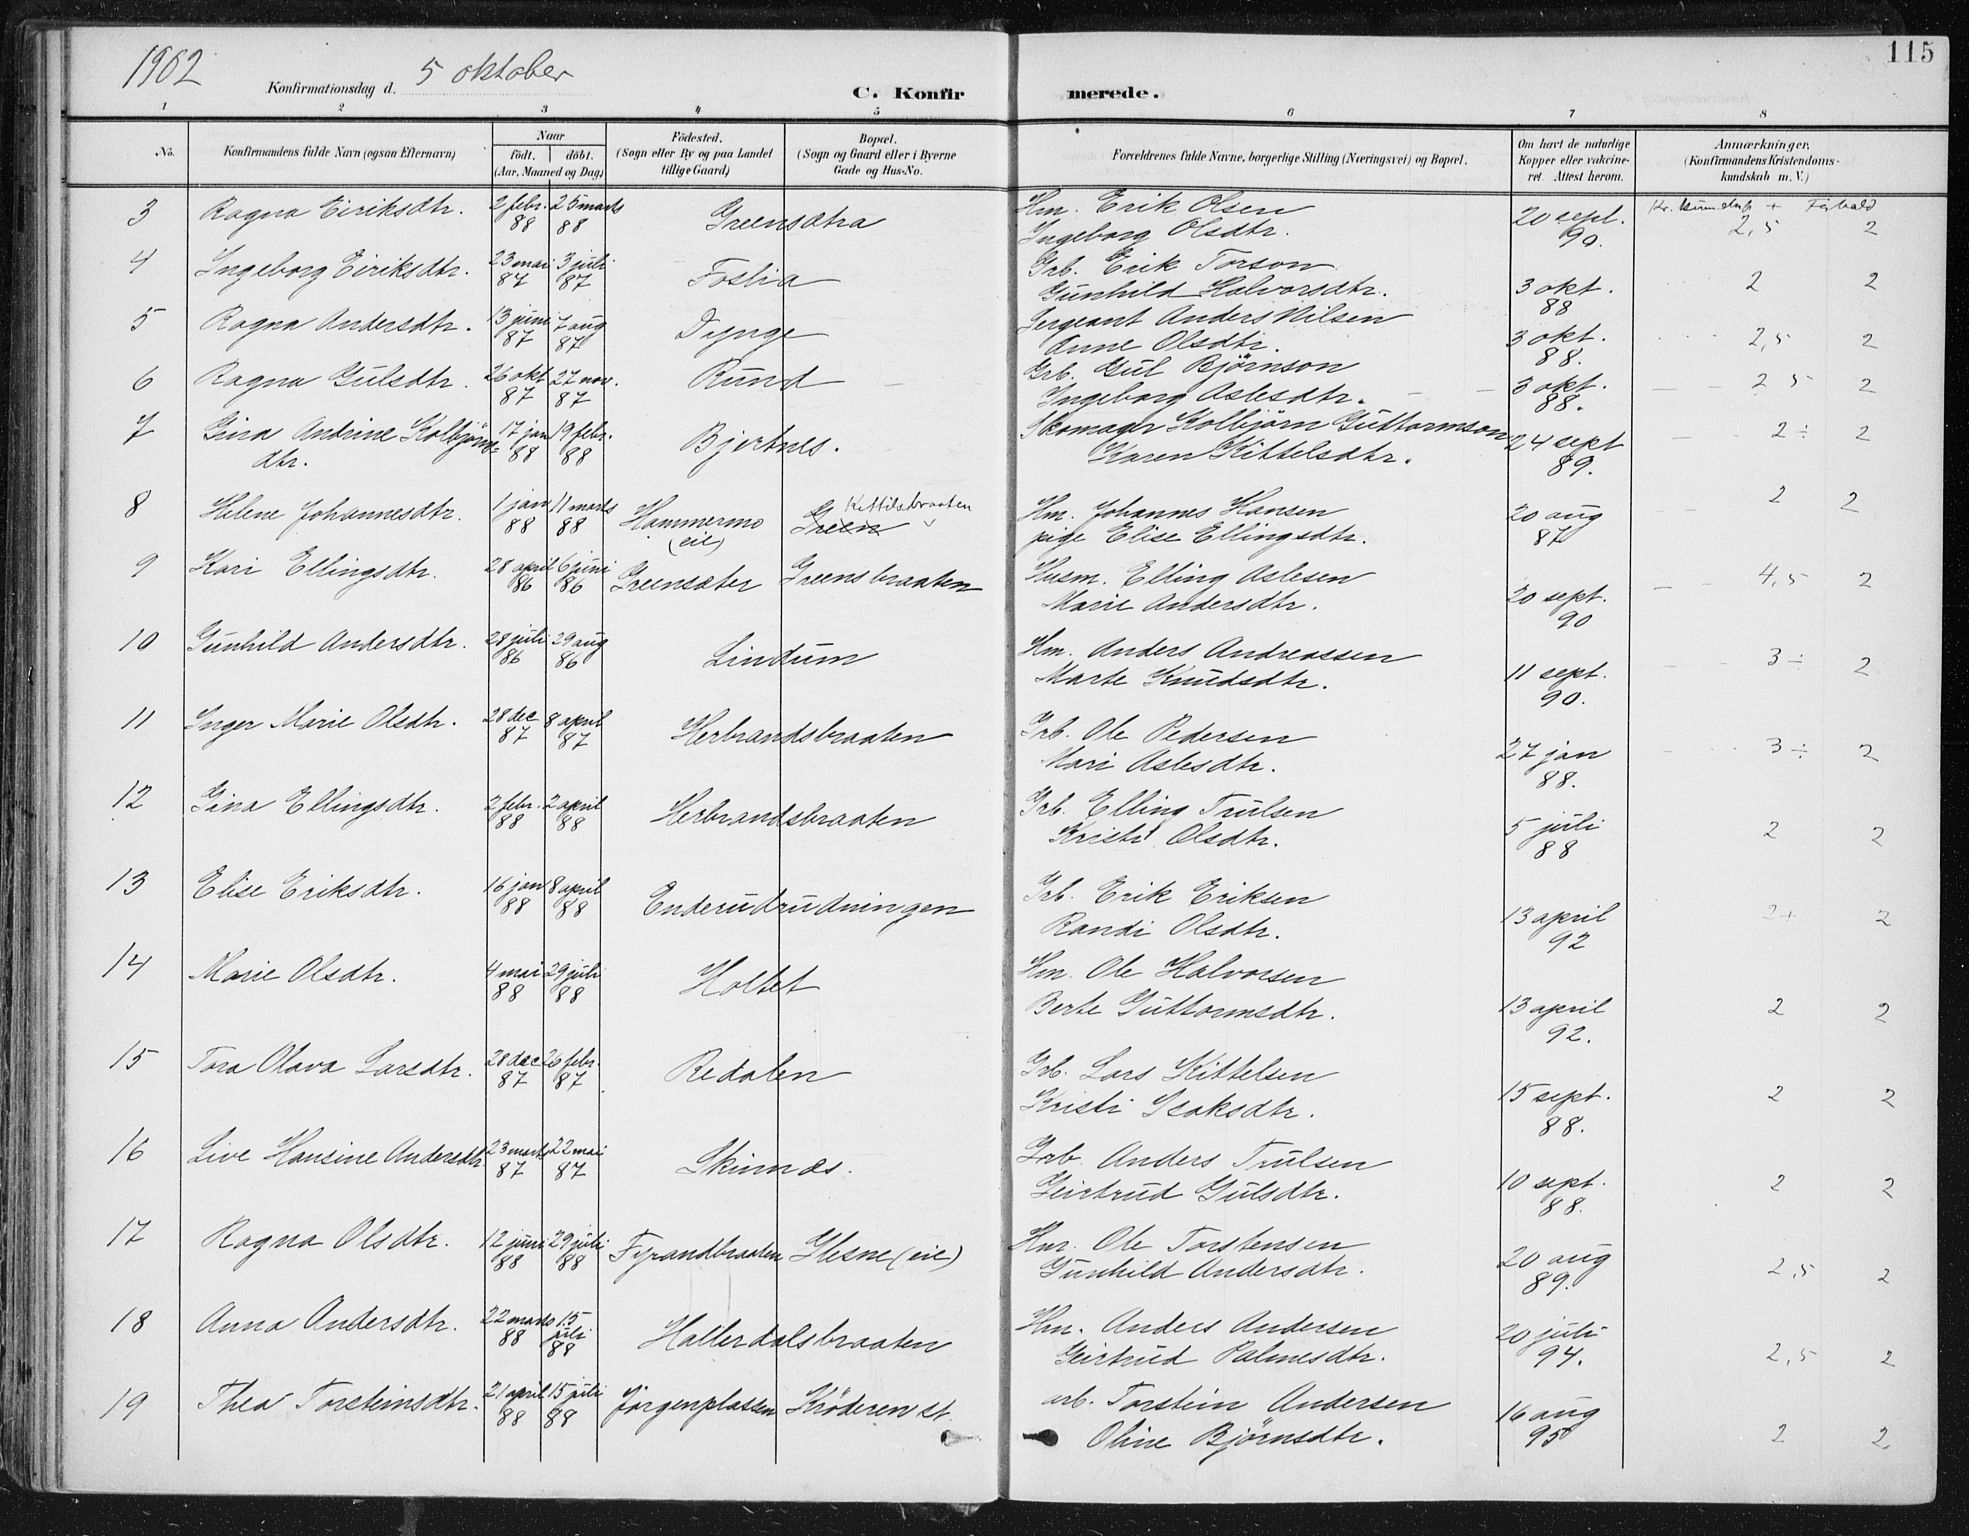 1902
Konfirmationsdag d. 5 oktober
C. Konfirmerede.
115
1 2 3 4 5 6 7 8
No. Konfirmandens fulde Navn (ogsaa Efternavn) Naar födt. döbt. (Aar, Maaned og Dag) Födested. (Sogn eller By og paa Landet tillige Gaard) Bopæl. (Sogn og Gaard eller i Byerne Gade og Hus-No.) Forældrenes fulde Navne, borgerlige Stilling (Næringsvei) og Bopæl. Om havt de naturlige Kopper eller vakcineret. Attest herom. Anmærkninger. (Konfirmandens Kristendomskundskab m. V.)
Kr. kundsk + Forhold
3 Ragna Eiriksdtr. 2 febr. 88 25 marts 88 Greensætra Hm. Erik Olsen Ingeborg Olsdtr. 20 sept. 90. 2,5 2
4 Ingeborg Eiriksdtr. 23 mai 87 3 juli 87 Foslia Grb. Erik Torson Gunhild Halvorsdtr. 3 okt. 88 2 2
5 Ragna Andersdtr. 13 juni 87 7 aug 87 Dynge Sergeant Anders Nilsen Anne Olsdtr. 3 okt. 88. 2,5 2
6 Ragna Gulsdtr. 26 okt 87 27 nov. 87 Rund Grb. Gul Bjørnson Ingeborg Aslesdtr. 3 okt. 88. 2 5 2
7 Gina Andrine Kolbjørnsdtr. 17 jan 88 19 febr. 88 Bjertnes. Skomager Kolbjørn Guttormson Karen Kittelsdtr. 24 sept 89. 2 ÷ 2
8 Helene Johannesdtr. 1 jan 88 11 marts 88 Hammermo (eie) Green Kittilsbraaten Hm. Johannes Hansen pige Elise Ellingsdtr. 20 aug 87 2 2
9 Kari Ellingsdtr. 28 april 86 6 juni 86 Greensæter Greensbraaten Husm. Elling Aslesen Marie Andersdtr. 20 sept. 90 4,5 2
10 Gunhild Andersdtr. 28 juli 86 29 aug 86 Lindum Hm. Anders Andreassen Marte Knudsdtr. 11 sept. 90. 3 ÷ 2
11 Inger Marie Olsdtr. 28 dec 87 8 april 87 Herbrandsbraaten Grb. Ole Pedersen Mari Aslesdtr. 27 jan 88. 3 ÷ 2
12 Gina Ellingsdtr. 2 febr. 88 2 april 88 Herbrandsbraaten Grb. Elling Trulsen Kristi Olsdtr. 5 juli 88 2 2
13 Elise Eriksdtr. 16 jan 88 8 april 88 Enderudrudningen Grb. Erik Eriksen Randi Olsdtr. 13 april 92 2+ 2
14 Marie Olsdtr. 4 mai 88 29 juli 88 Holtet Hm. Ole Halvorsen Berte Guttormsdtr. 13 april 92. 2 2
15 Tora Olava Larsdtr. 28 dec 87 26 febr. 87 Redalen Grb. Lars Kittelsen Kristi Isaksdtr. 15 sept. 88. 2 2
16 Live Hansine Andersdtr 23 marts 87 22 mai 87 Skinnæs. Grb. Anders Trulsen Geirtrud Gulsdtr. 10 sept. 88. 2 2
17 Ragna Olsdtr. 12 juni 88 29 juli 88 Fyrandbraaten Glesne (eie) Hm. Ole Torstensen Gunhild Andersdtr. 20 aug 89. 2,5 2
18 Anna Andersdtr. 22 marts 88 15 juli 88 Hallerdalsbraaten Hm. Anders Andersen Geirtrud Palmesdtr. 20 juli 94. 2,5 2
19 Thea Torsteinsdtr. 21 april 88 15 juli 88 Jörgenplassen Kröderen st. arb. Torstein Andersen Oline Bjørnsdtr. 16 aug 95 2 2.